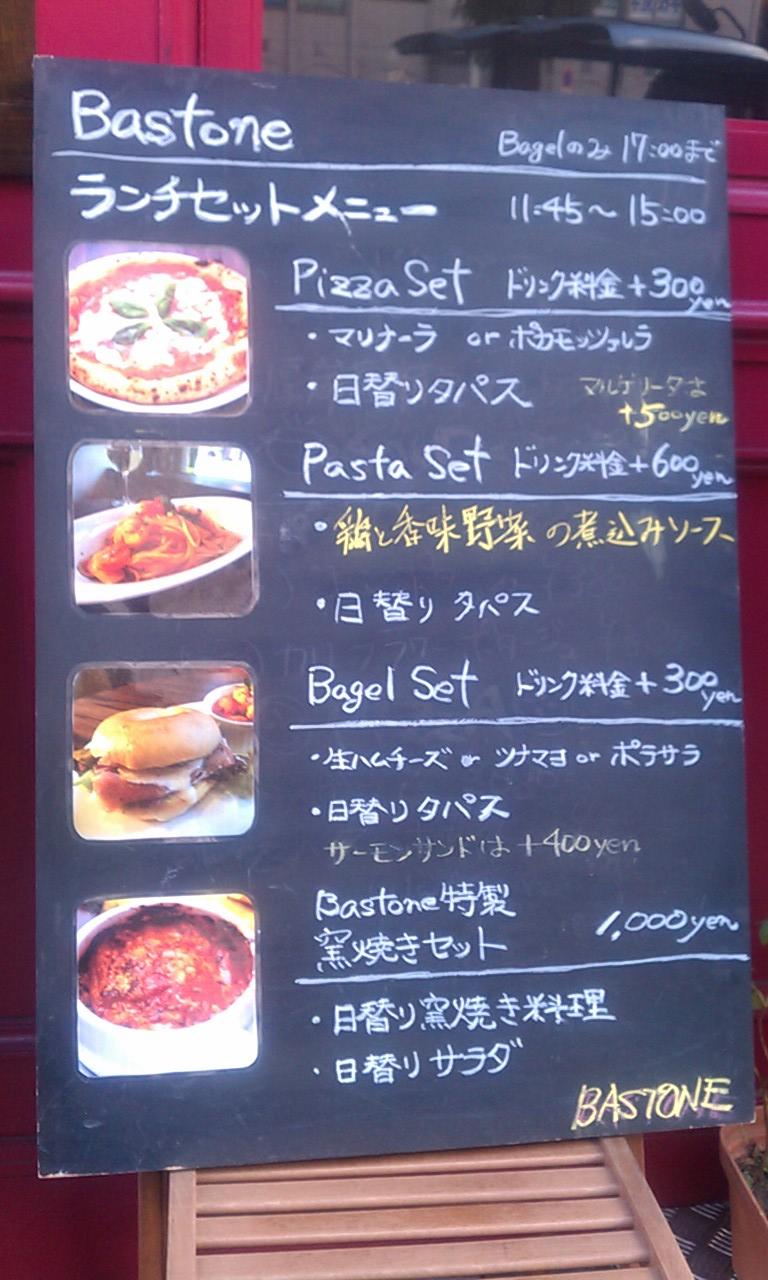 Bastone
Bagelのみ 17:00まで
ランチセットメニュー 11:45〜15:00
Pizza Set ドリンク料金+300yen
・マリナーラ or ポカモッツァレラ
・日替りタパス
マルゲリータは
+500yen
Pasta Set ドリンク料金+600yen
・鶏と香味野菜の煮込みソース
・日替りタパス
Bagel Set ドリンク料金+300yen
・生ハムチーズ or ツナマヨ or ポテサラ
・日替りタパス
サーモンサンドは+400yen
Bastone特製
窯焼きセット 1,000yen
・日替り窯焼き料理
・日替りサラダ
BASTONE